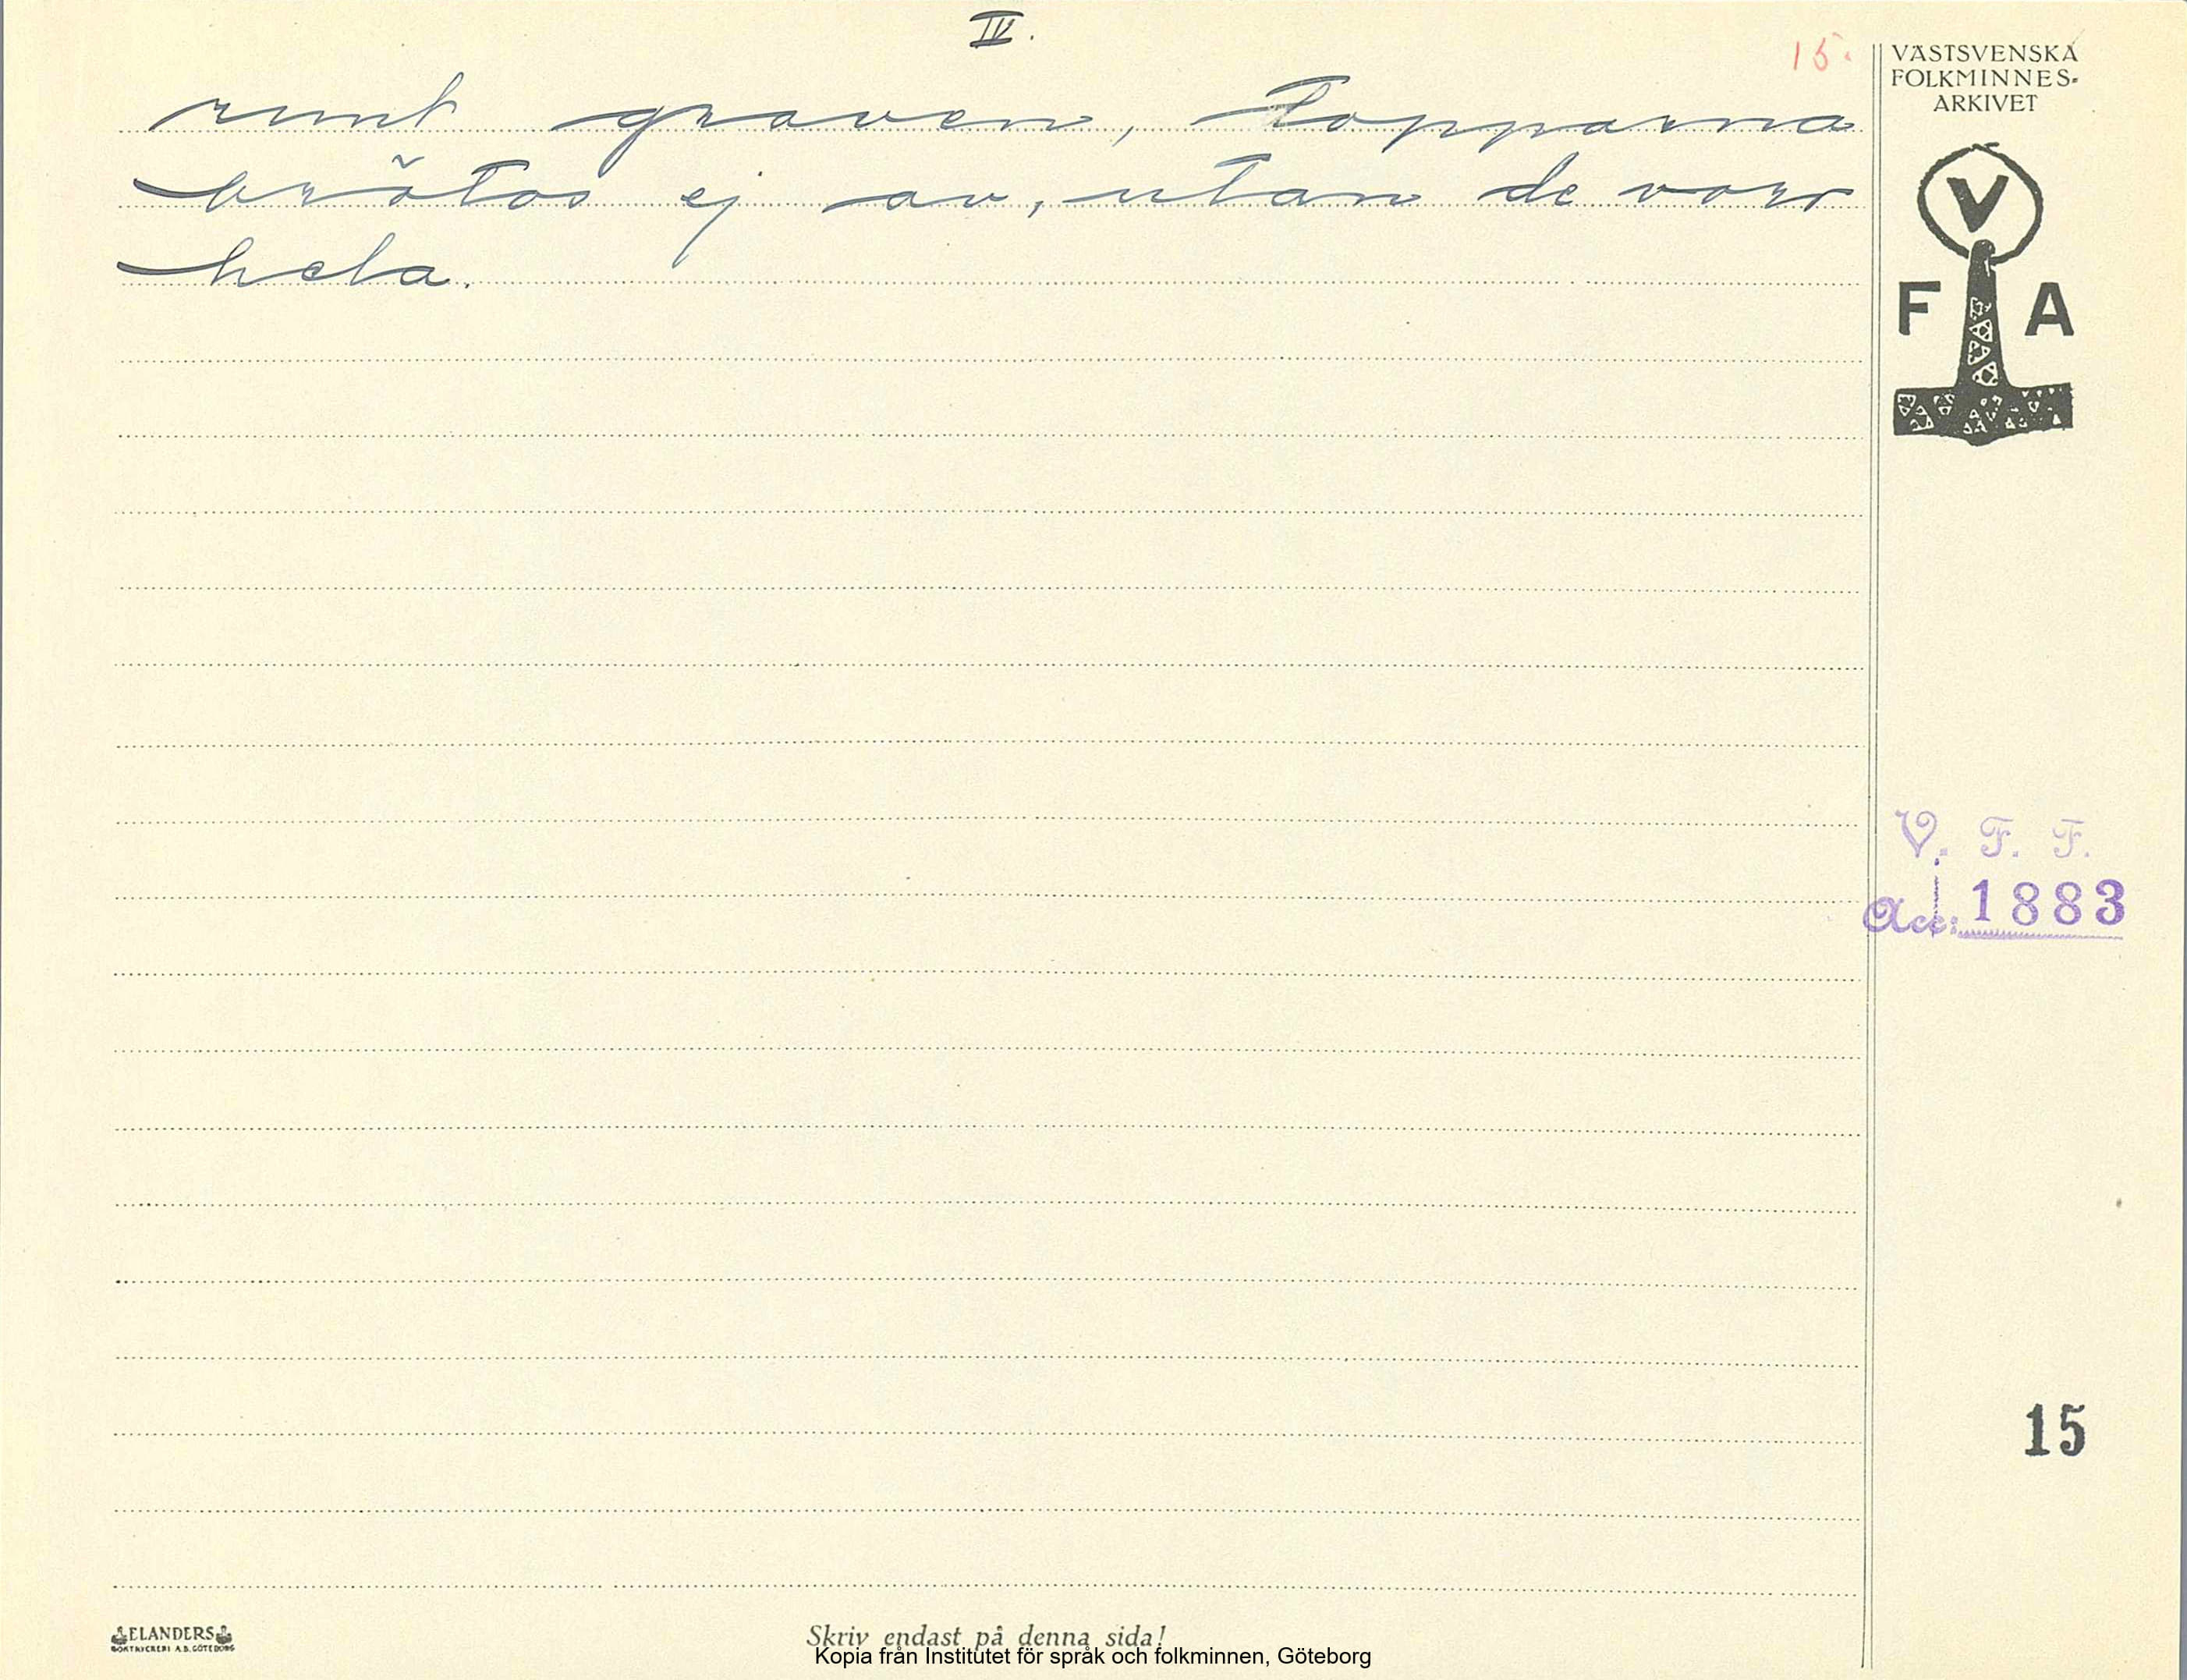 IV.
15.
runt graven, topparna
brötos ej av, utan de voro
hela.
VÄSTSVENSKA
FOLKMINNES-
ARKIVET
V
F A
V. F. F.
Acc. 1883
15
ELANDERS
BOKTRYCKERI A.B. GÖTEBORG
Skriv endast på denna sida!
Kopia från Institutet för språk och folkminnen, Göteborg